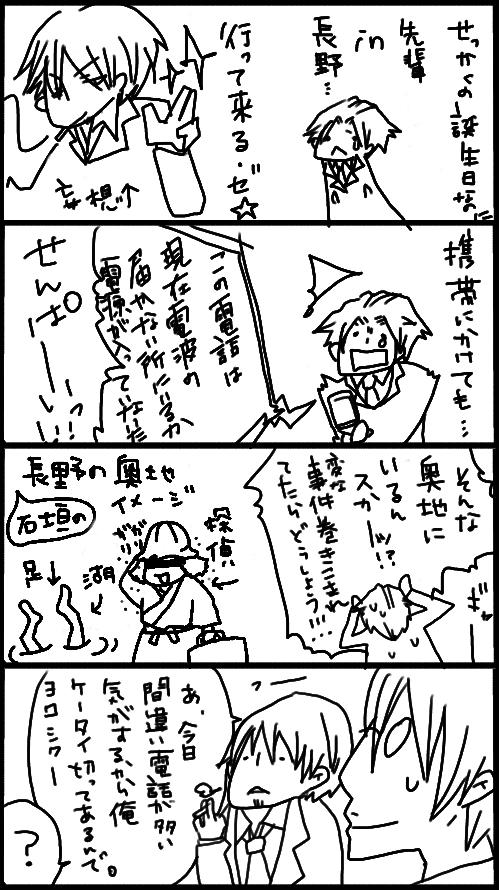 せっかくの誕生日なに
先輩
in
長野…
行って来る・ゼ☆
妄想↑
携帯にかけても…
この電話は
現在電波の
届かない所にいるか、
電源が入っていない為
せんぱーーい!!
そんな
奥地に
いるん
スかーッ!?
変な
事件巻きこまれ
てたらどうしよう…!!
長野の奥地
イメージ
石垣の
探偵
ガリ
ガリ
湖
足↓
あ、今日
間違い電話が多い
気がするから俺
ケータイ切ってあるんで。
ヨロシクー
?